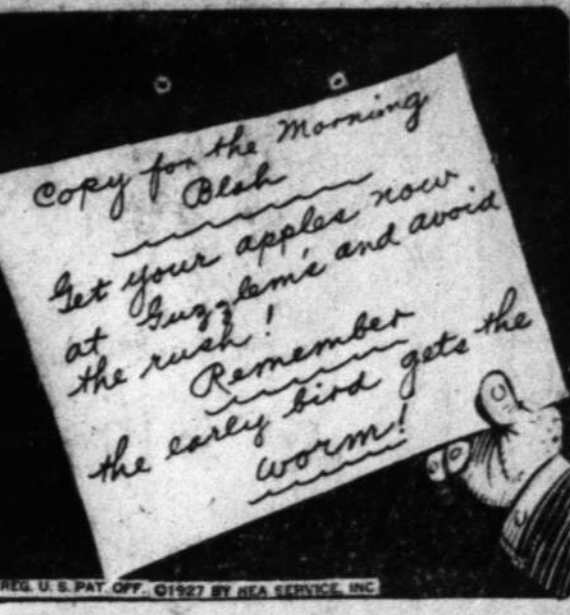 Copy for the Morning
Blah
Get your apples now
at Guzzlem's and avoid
the rush!
Remember
the early bird gets the
worm!
REG. U. S. PAT. OFF. ©1927 BY NEA SERVICE, INC